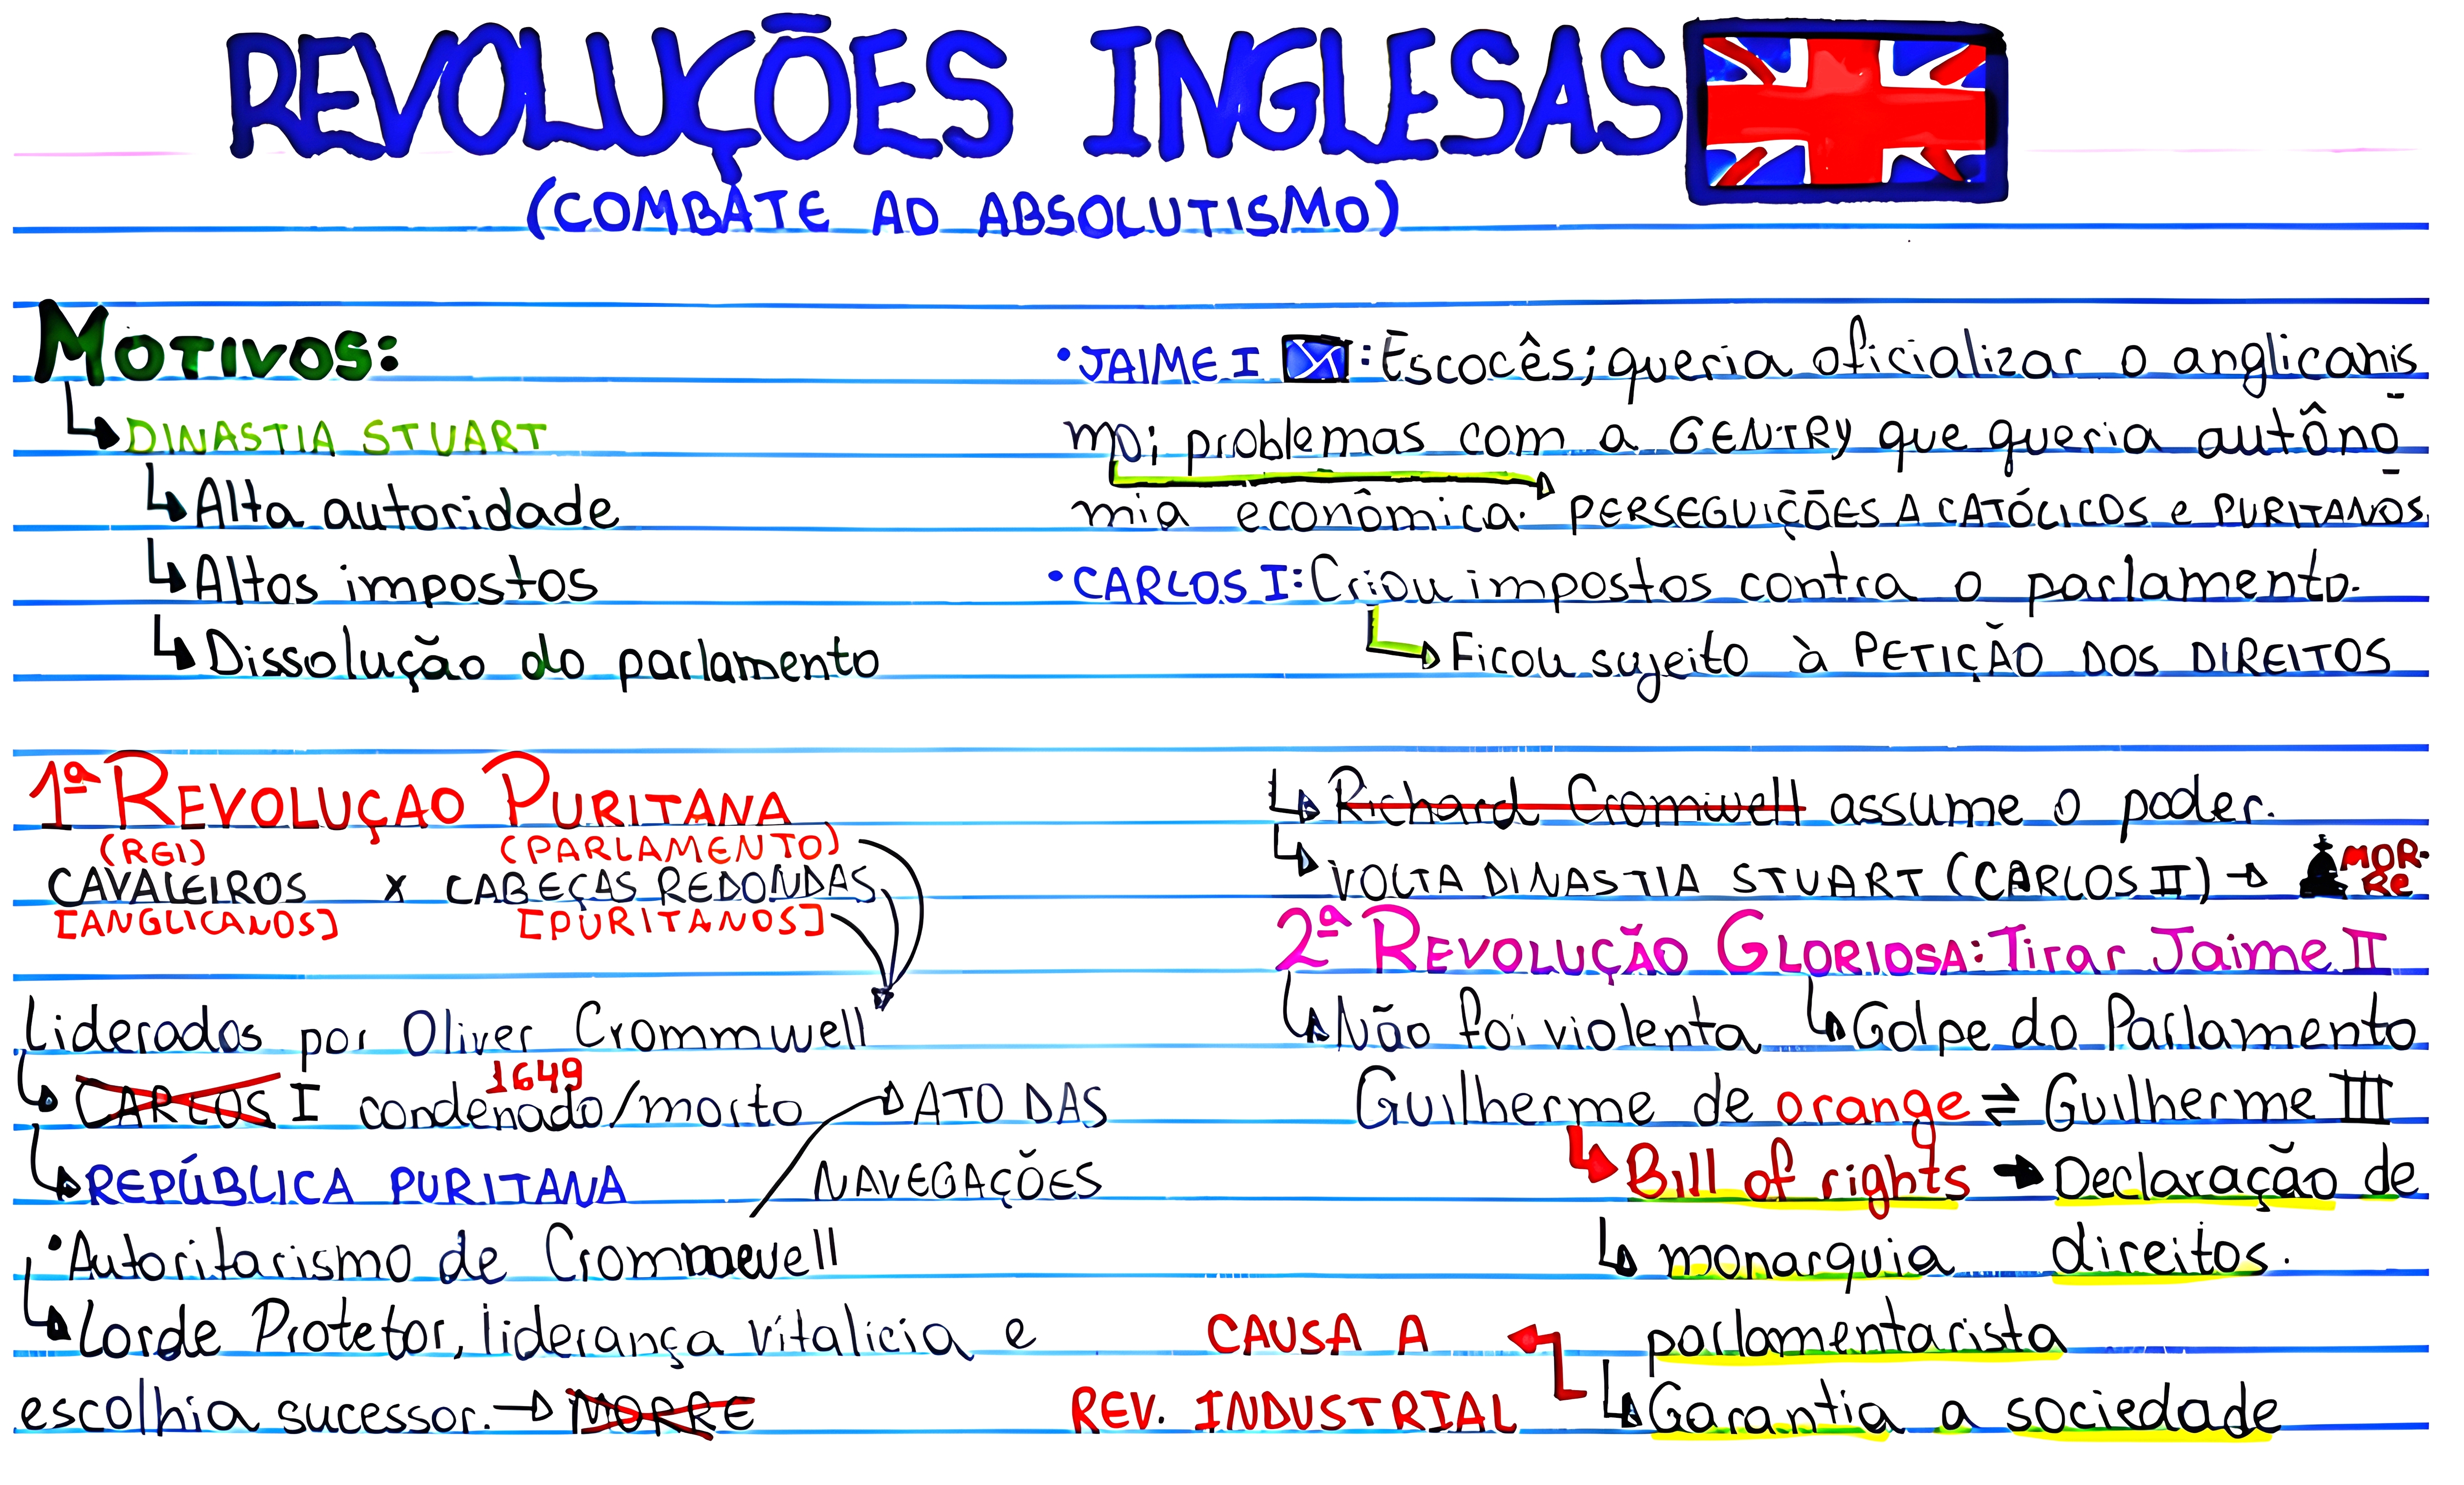 REVOLUÇÕES INGLESAS
(COMBATE AO ABSOLUTISMO)
MOTIVOS:
DINASTIA STUART
Alta autoridade
Altos impostos
Dissolução do parlamento
• JAIME I : Escocês; queria oficializar o anglicanis
mo; problemas com a GENTRY que queria autôno
mia econômica. PERSEGUIÇÕES A CATÓLICOS e PURITANOS.
• CARLOS I: Criou impostos contra o parlamento.
Ficou sujeito à PETIÇÃO DOS DIREITOS
1ª REVOLUÇÃO PURITANA
(REI) (PARLAMENTO)
CAVALEIROS X CABEÇAS REDONDAS
[ANGLICANOS] [PURITANOS]
Liderados por Oliver Crommwell
1649
CARLOS I condenado/morto
REPÚBLICA PURITANA
ATO DAS
NAVEGAÇÕES
• Autoritarismo de Crommewell
Lorde Protetor, liderança vitalícia e
escolhia sucessor. → MORRE
Richard Cromwell assume o poder.
VOLTA DINASTIA STUART (CARLOS II) → MOR-
RE
2ª REVOLUÇÃO GLORIOSA: Tirar Jaime II
Não foi violenta Golpe do Parlamento
Guilherme de orange ⇌ Guilherme III
Bill of rights → Declaração de
direitos.
monarquia
parlamentarista
Garantia a sociedade
CAUSA A
REV. INDUSTRIAL